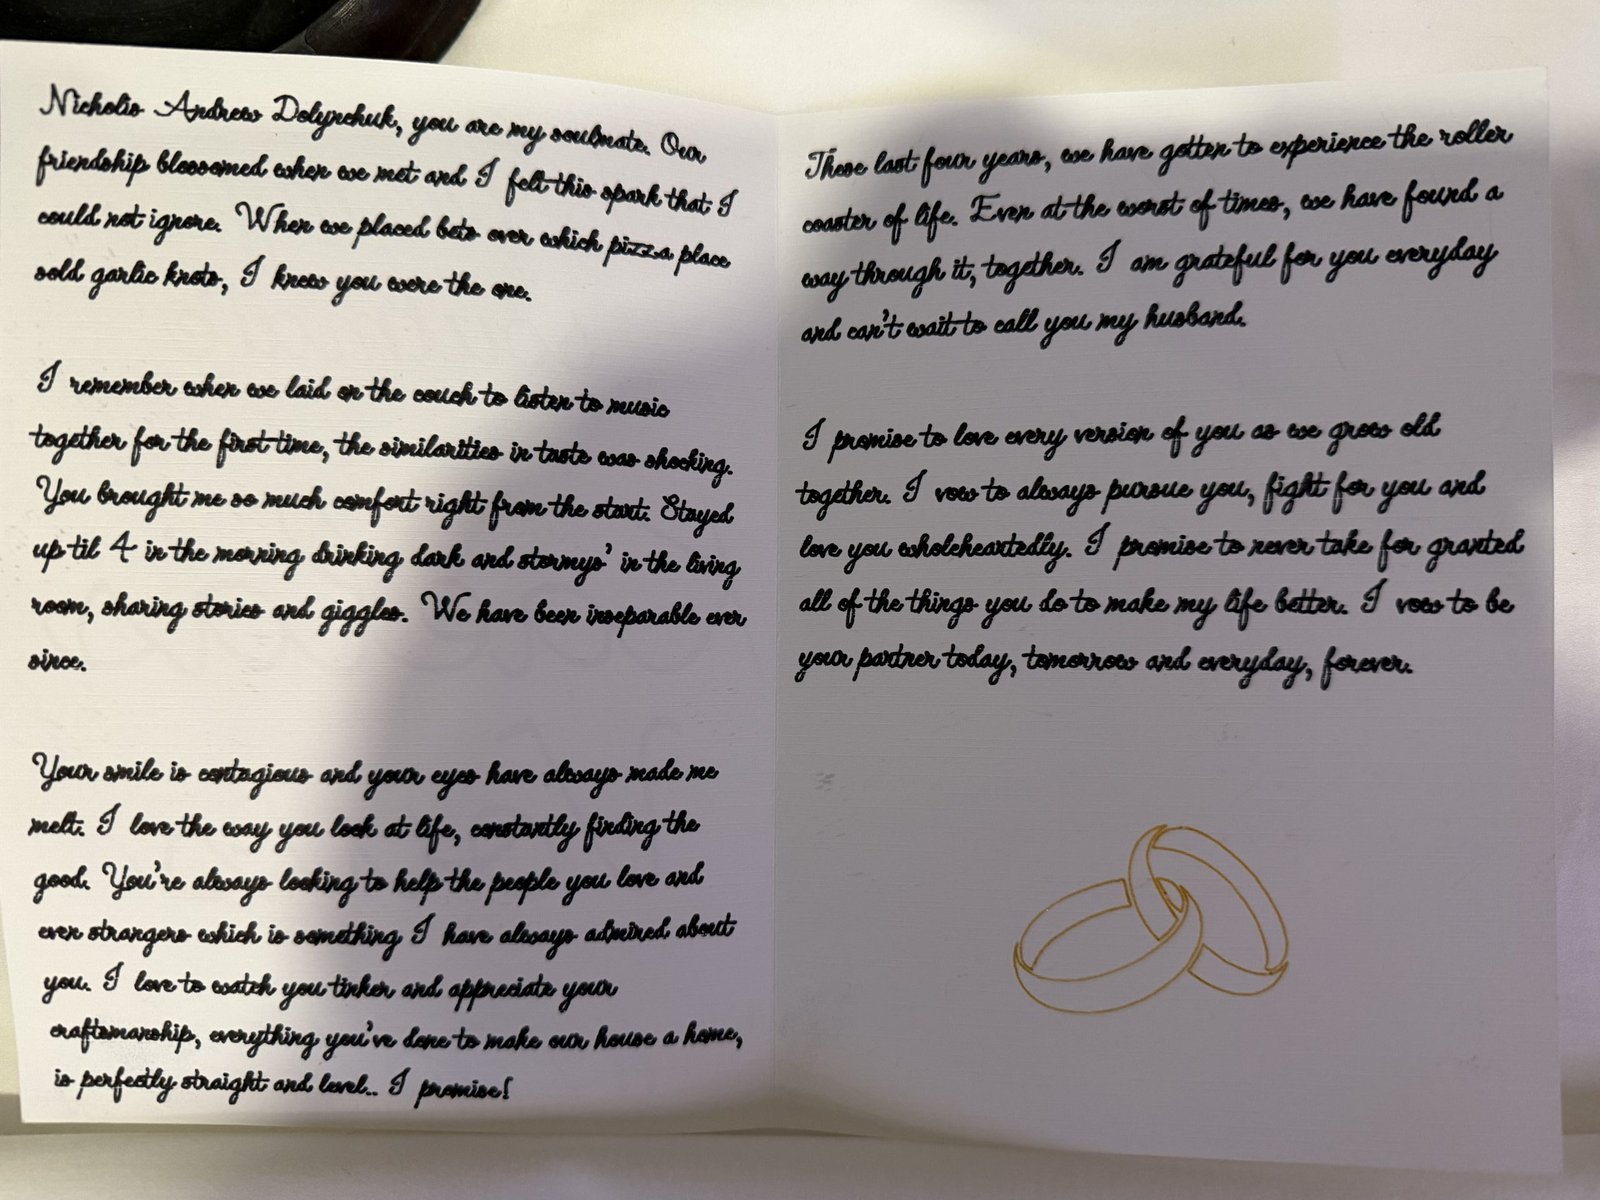 Nicholis Andrew Dolynchuk, you are my soulmate. Our
friendship blossomed when we met and I felt this spark that I
could not ignore. When we placed bets over which pizza place
sold garlic knots, I knew you were the one.
I remember when we laid on the couch to listen to music
together for the first time, the similarities in taste was shocking.
You brought me so much comfort right from the start. Stayed
up til 4 in the morning drinking dark and stormys' in the living
room, sharing stories and giggles. We have been inseparable ever
since.
Your smile is contagious and your eyes have always made me
melt. I love the way you look at life, constantly finding the
good. You're always looking to help the people you love and
even strangers which is something I have always admired about
you. I love to watch you tinker and appreciate your
craftsmanship, everything you've done to make our house a home,
is perfectly straight and level.. I promise!
These last four years, we have gotten to experience the roller
coaster of life. Even at the worst of times, we have found a
way through it, together. I am grateful for you everyday
and can't wait to call you my husband.
I promise to love every version of you as we grow old
together. I vow to always pursue you, fight for you and
love you wholeheartedly. I promise to never take for granted
all of the things you do to make my life better. I vow to be
your partner today, tomorrow and everyday, forever.